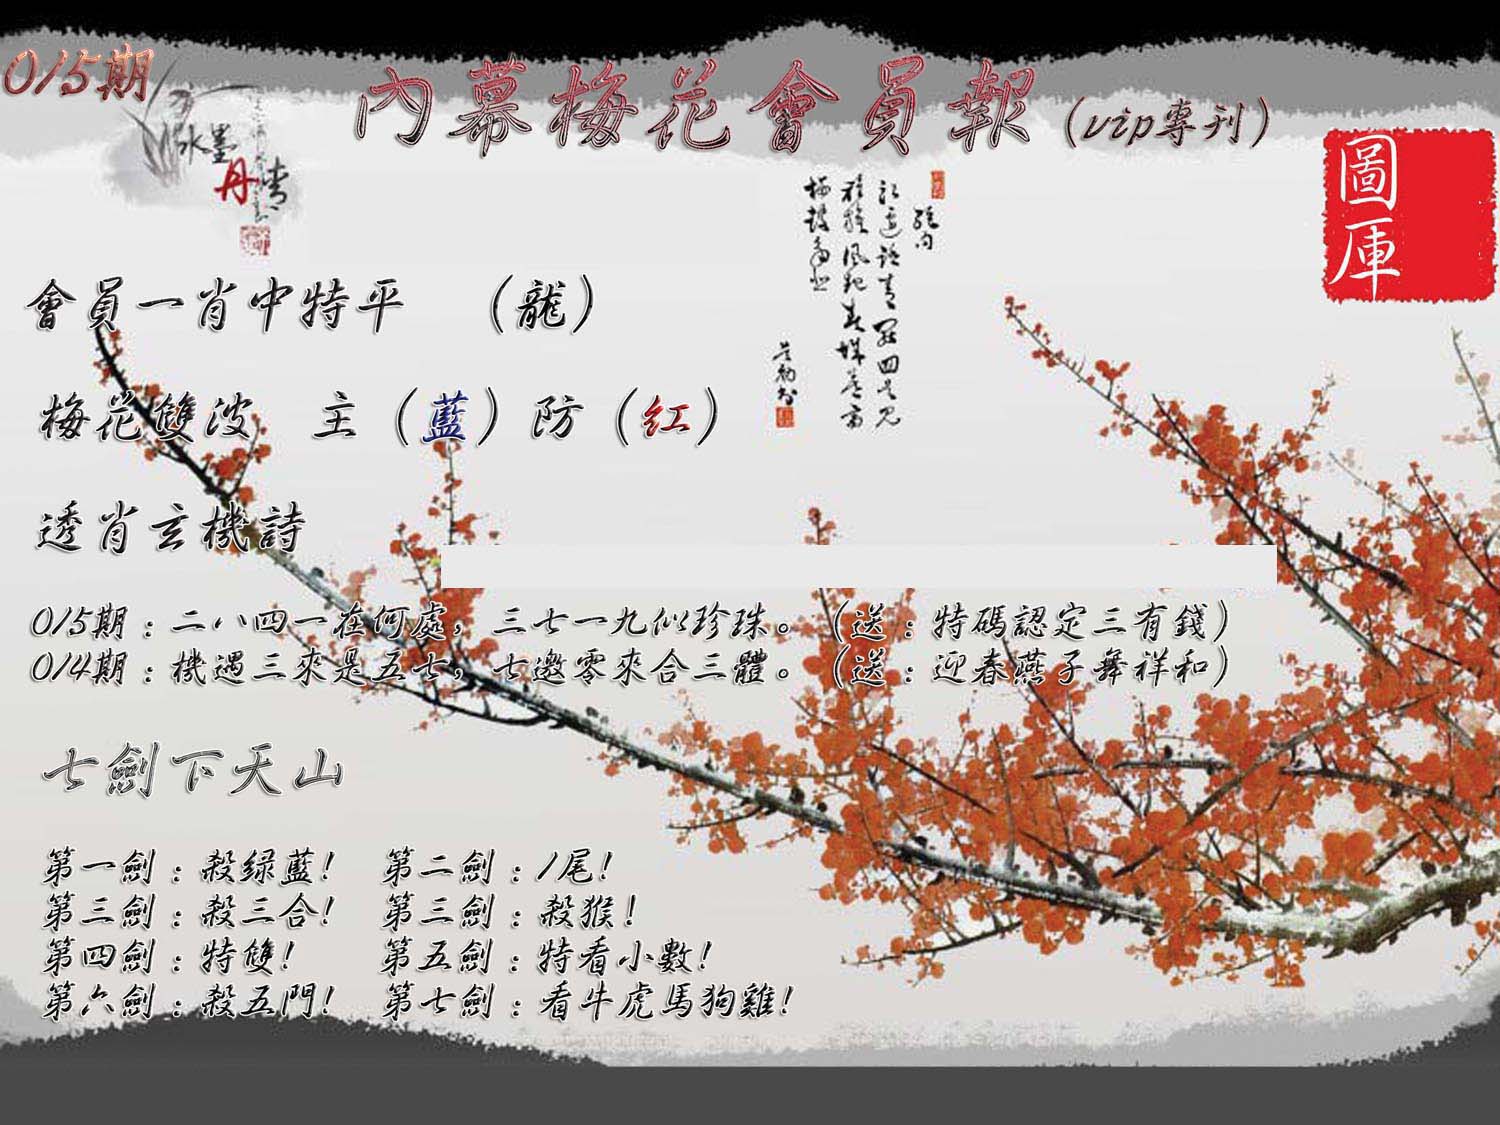 015期
內幕梅花會員報（vip專刊）
水墨
丹青
圖
庫
會員一肖中特平　（龍）
梅花雙波　主（藍）防（紅）
透肖玄機詩
015期：二八四一在何處，三七一九似珍珠。（送：特碼認定三有錢）
014期：機遇三來是五七，七邀零來合三體。（送：迎春燕子舞祥和）
七劍下天山
第一劍：殺绿藍！　第二劍：1尾！
第三劍：殺三合！　第三劍：殺猴！
第四劍：特雙！　第五劍：特看小數！
第六劍：殺五門！　第七劍：看牛虎馬狗雞！